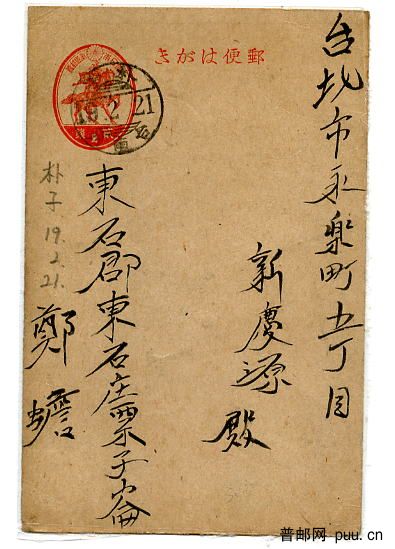 郵便はがき
朴
19.2.21
台北市永楽町五丁目
新慶源 殿
東石郡東石庄栗子崙
鄭 蟾
朴子 19.2.21.
普邮网 puu.cn